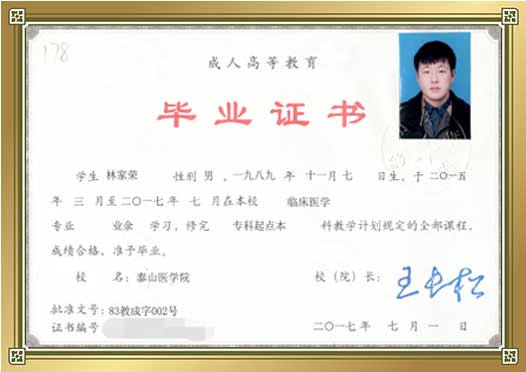 178
成人高等教育
毕业证书
学生 林家荣 性别 男 ,一九八九 年 十一月 七 日生,于 二〇一五
年 三 月至二〇一七年 七 月在本校 临床医学
专业 业余 学习,修完 专科起点本 科教学计划规定的全部课程,
成绩合格,准予毕业。
校 名:泰山医学院 校(院)长:
批准文号:83教成字002号
证书编号 二〇一七年 七 月 一 日